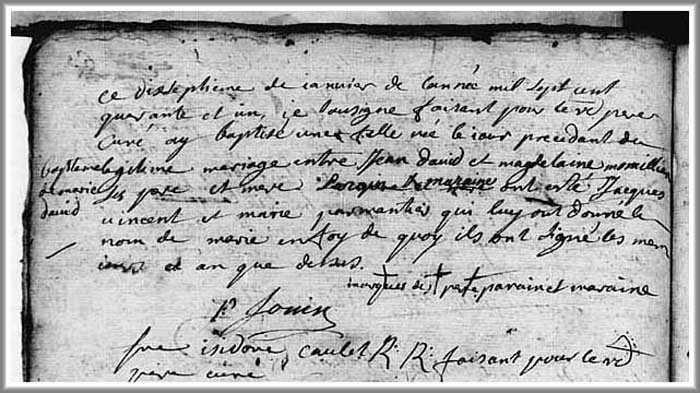 ce dixseptieme de ianvier de lannée mil sept cent
quarante et un, je sousigne faisant pour le rd pere
curé ay baptisé une fille née le iour precedant du
legitime mariage entre Jean david et magdelaine
ses pere et mere ont esté Jacques
vincent et marie parmantier qui luy ont donné le
nom de marie en foy de quoy ils ont signé les mem
et an que desus.
bapteme
de marie
david
marques des parain et maraine
Jouin
fre isidore caulet R: R: faisant pour le rd
pere curé